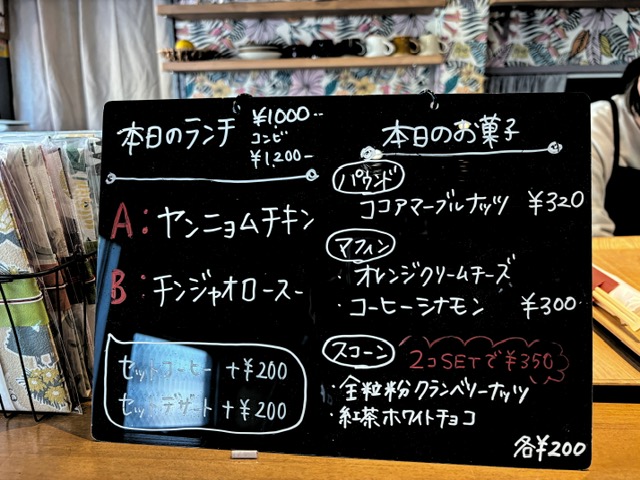 本日のランチ
¥1000-
コンビ
¥1,200-
A: ヤンニョムチキン
B: チンジャオロースー
セットコーヒー +¥200
セットデザート +¥200
本日のお菓子
パウンド
ココアマーブルナッツ ¥320
マフィン
・オレンジクリームチーズ
・コーヒーシナモン ¥300
スコーン
2コSETで¥350
・全粒粉クランベリーナッツ
・紅茶ホワイトチョコ
各¥200